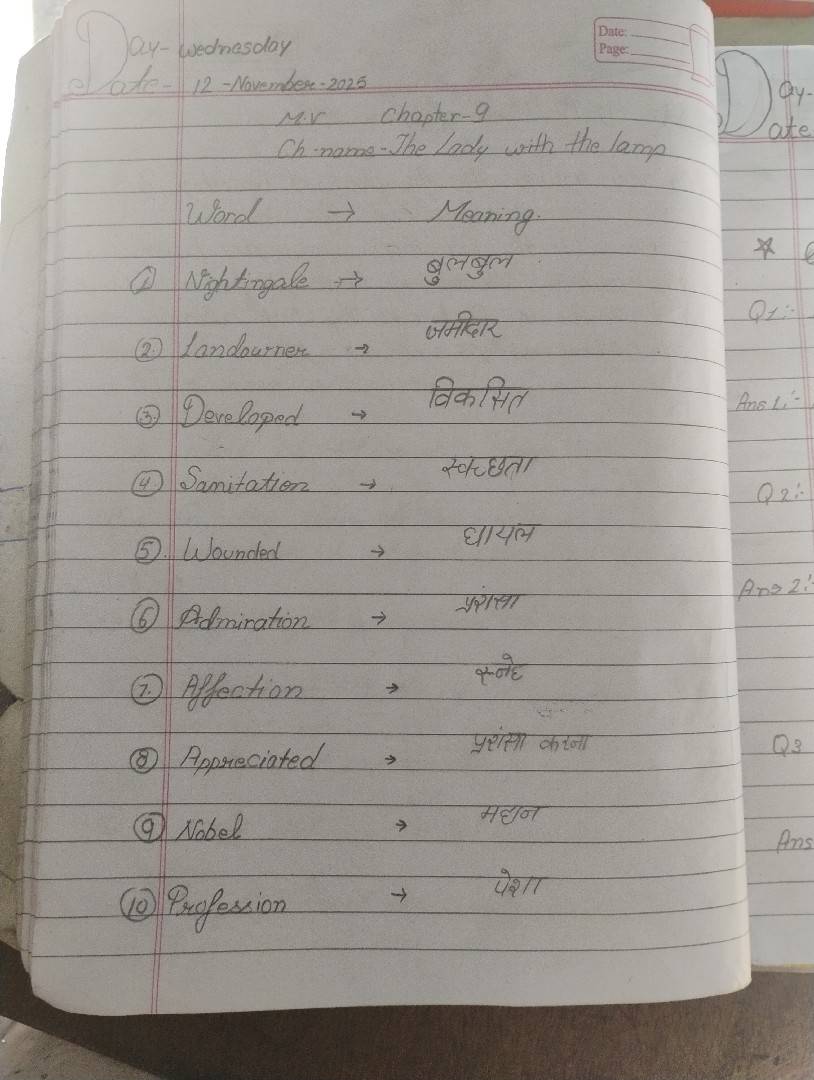 Day- Wednesday
Date:
Page:
Date- 12 -November-2025
M.V Chapter-9
Ch-name-The Lady with the lamp
Word → Meaning.
① Nightingale → बुलबुल
②. Landourner → जमीदार
③. Developed → विकसित
④ Sanitation → स्वच्छता
⑤. Wounded → घायल
⑥ Admiration → प्रशंसा
⑦. Affection → स्नेह
⑧ Appreciated → प्रशंसा करना
⑨ Nobel → महान
⑩ Profession → पेशा
Day-
Date
Q1:-
Ans 1:-
Q2:-
Ans 2:-
Q3
Ans